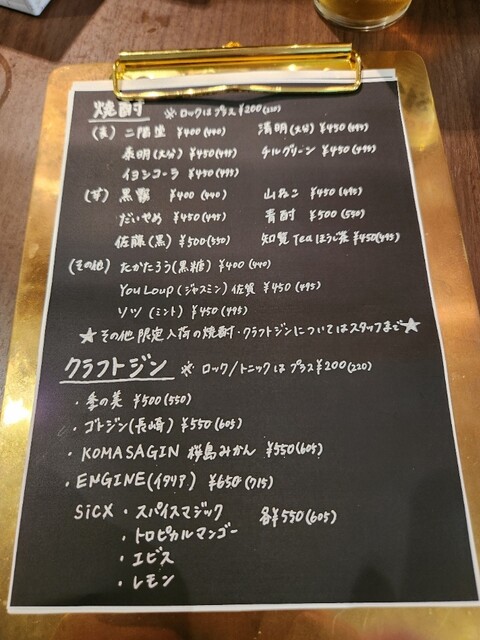 焼酎 ※ ロックは プラス ¥200(220)
(麦) 二階堂 ¥400(440) 清明(大分) ¥450(495)
泰明(大分) ¥450(495) チルグリーン ¥450(495)
イヨシコーラ ¥450(495)
(芋) 黒霧 ¥400(440) 山ねこ ¥450(495)
だいやめ ¥450(495) 青酎 ¥500(550)
佐藤(黒) ¥500(550) 知覧Teaほうじ茶 ¥450(495)
(その他) たかたろう(黒糖) ¥400(440)
You Loup(ジャスミン)佐賀 ¥450(495)
ソツ(ミント) ¥450(495)
★その他 限定入荷の焼酎・クラフトジンについてはスタッフまで★
クラフトジン ※ ロック/トニックは プラス¥200(220)
・季の美 ¥500(550)
・ゴトジン(長崎) ¥550(605)
・KOMASAGIN 桜島みかん ¥550(605)
・ENGINE(イタリア) ¥650(715)
SiCX ・スパイスマジック 各¥550(605)
・トロピカルマンゴー
・エビス
・レモン